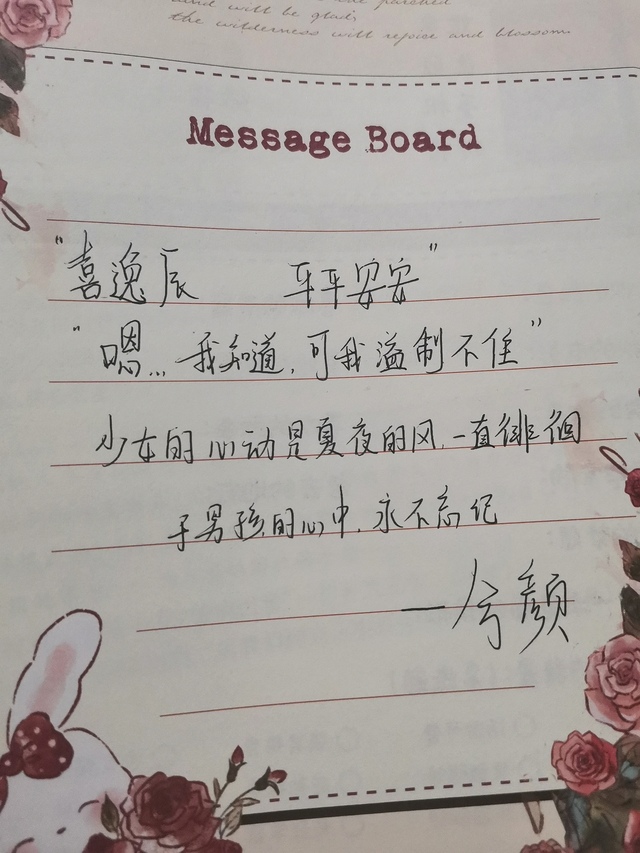 and will be glad;
the wilderness will rejoice and blossom.
Message Board
"喜逸辰 平平安安"
"嗯... 我知道, 可我溢制不住"
少女的心动是夏夜的风, 一直徘徊
于男孩的心中, 永不忘记
—兮颜